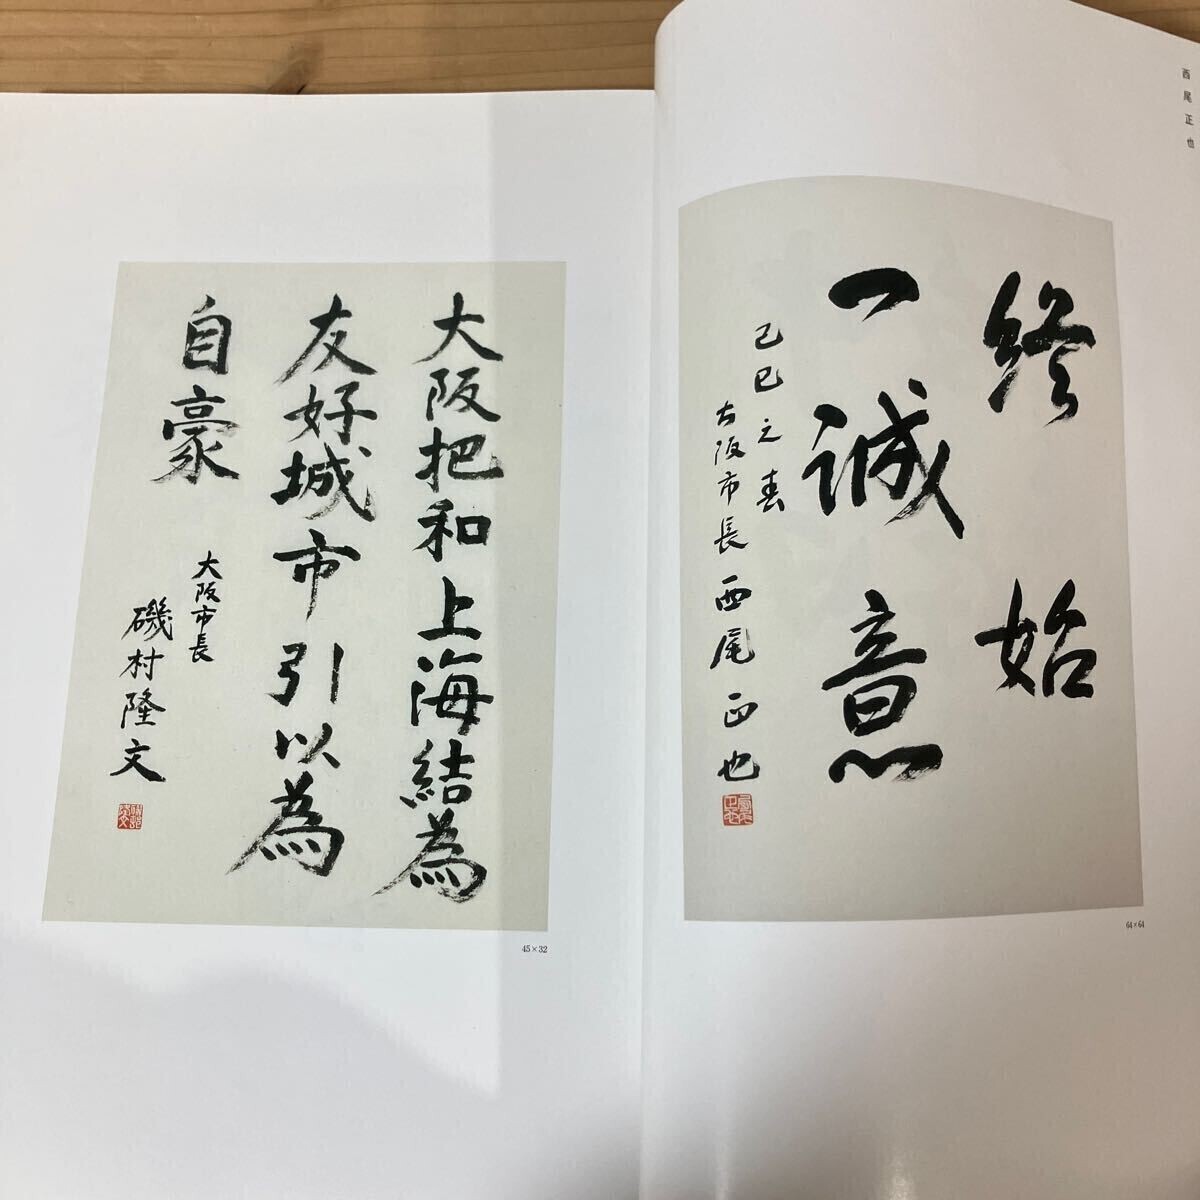 西尾正也
終始
一誠意
己巳之春
大阪市長西尾正也
64×64
大阪把和上海結為
友好城市引以為
自豪
大阪市長
磯村隆文
45×32